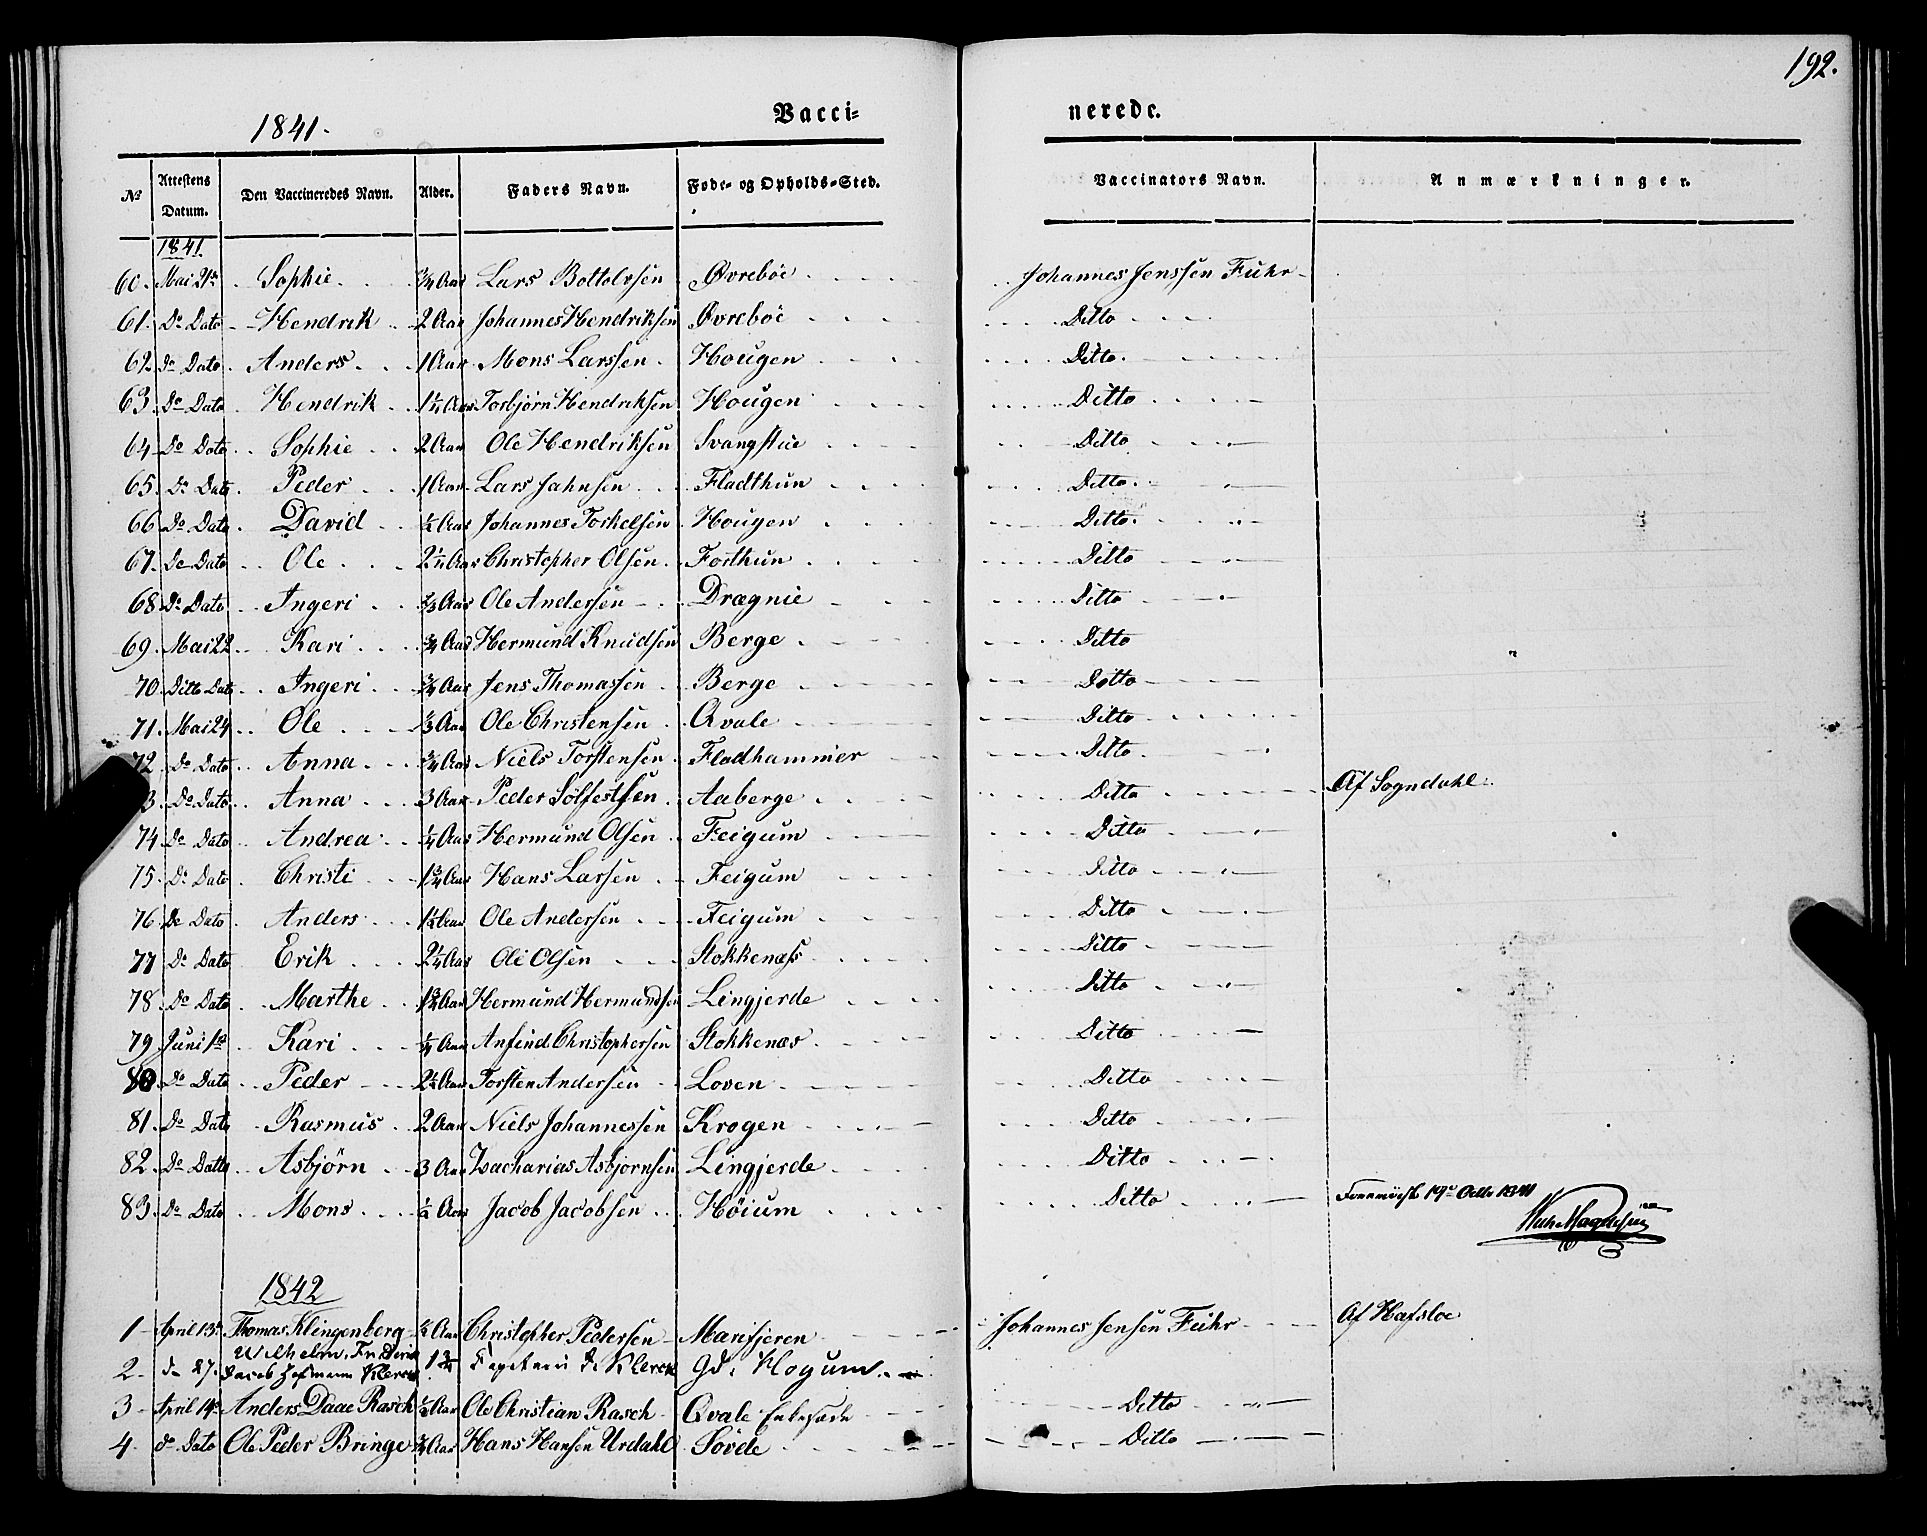 192.
1841.
Vacci=
nerede.
No Attestens Datum. Den Vaccineredes Navn. Alder. Faders Navn. Føde- og Opholds-Sted. Vaccinators Navn. Anmærkninger.
1841.
60. Mai 21de Sophie. 3/4 Aar Lars Bottolvsen Øvrebøe Johannes Jenssen Fuhr
61. Do Dato Hendrik 2 Aar Johannes Hendriksen Øvrebøe Ditto
62. Do Dato Anders 1 Aar Mons Larssen Hougen Ditto.
63. Do Dato Hendrik 1 1/2 Aar Torbjørn Hendriksen Hougen Ditto
64. Do Dato Sophie 2 Aar Ole Hendriksen Svangstue Ditto
65. Do Dato Peder 1 Aar Lars Jahnsen Fladthun Ditto.
66 Do Dato David 1/2 Aar Johannes Torkelsen Hougen Ditto.
67. Do Dato Ole 2 1/2 Aar Christopher Olsen Forthun Ditto
68 Do Dato Ingeri Aar Ole Andersen Drægnie Ditto
69. Mai 22 Kari 3/4 Aar Hermund Knudsen Berge Ditto
70 Ditto Dato Ingeri 3/4 Aar Jens Thomassen Berge Ditto
71. Mai 24 Ole Aar Ole Christensen Qvale Ditto
72 Do Dato Anna 3/4 Aar Niels Torstensen Fladhammer Ditto
3 Do Dato Anna 3 Aar Peder Sølfestsen Aaberge Ditto Af Sogndahl
74 Do Dato Andrea 1/4 Aar Hermund Olsen Feigum Ditto
75. Do Dato Christi 1 3/4 Aar Hans Larsen Feigum Ditto
76 Do Dato Anders 1 1/2 Aar Ole Andersen Feigum Ditto
77 Do Dato Erik 2 1/4 Aar Ole Olsen Stokkenæss Ditto
78 Do Dato Marthe 1 3/4 Aar Hermund Hermundsen Lingjerde Ditto
79 Juni 1ste Kari 3/4 Aar Anfind Christophersen Stokkenæs Ditto
80 Do Dato Peder 2 1/2 Aar Torsten Andersen Loven Ditto
81. Do Dato Rasmus 2 Aar Niels Johannessen Krogen Ditto
82. Do Dato Asbjørn 3 Aar Zacharias Asbjørnsen Lingjerde Ditto
83. Do Dato Mons 1/2 Aar Jacob Jacobsen Høium Ditto Foreviist 19de Octb 1841
1842
1 April 13de Thomas Klingenberg 3/4 Aar Christopher Pedersen Marifjeren Johannes Jensen Fuhr Af Hafsloe
Wilhelm, Friderik
2 do 27. Jacob Hofmann Klerck 1 3/4 Capitain de Klerck Gd. Flogum
3 April 14de Anders Daae Rasch Aar Ole Christian Rasch Qvale Enkesæde Ditto
4 do Dato Ole Peder Bringe 3/4 Aar Hans Hansen Urdahl Sørde Ditto